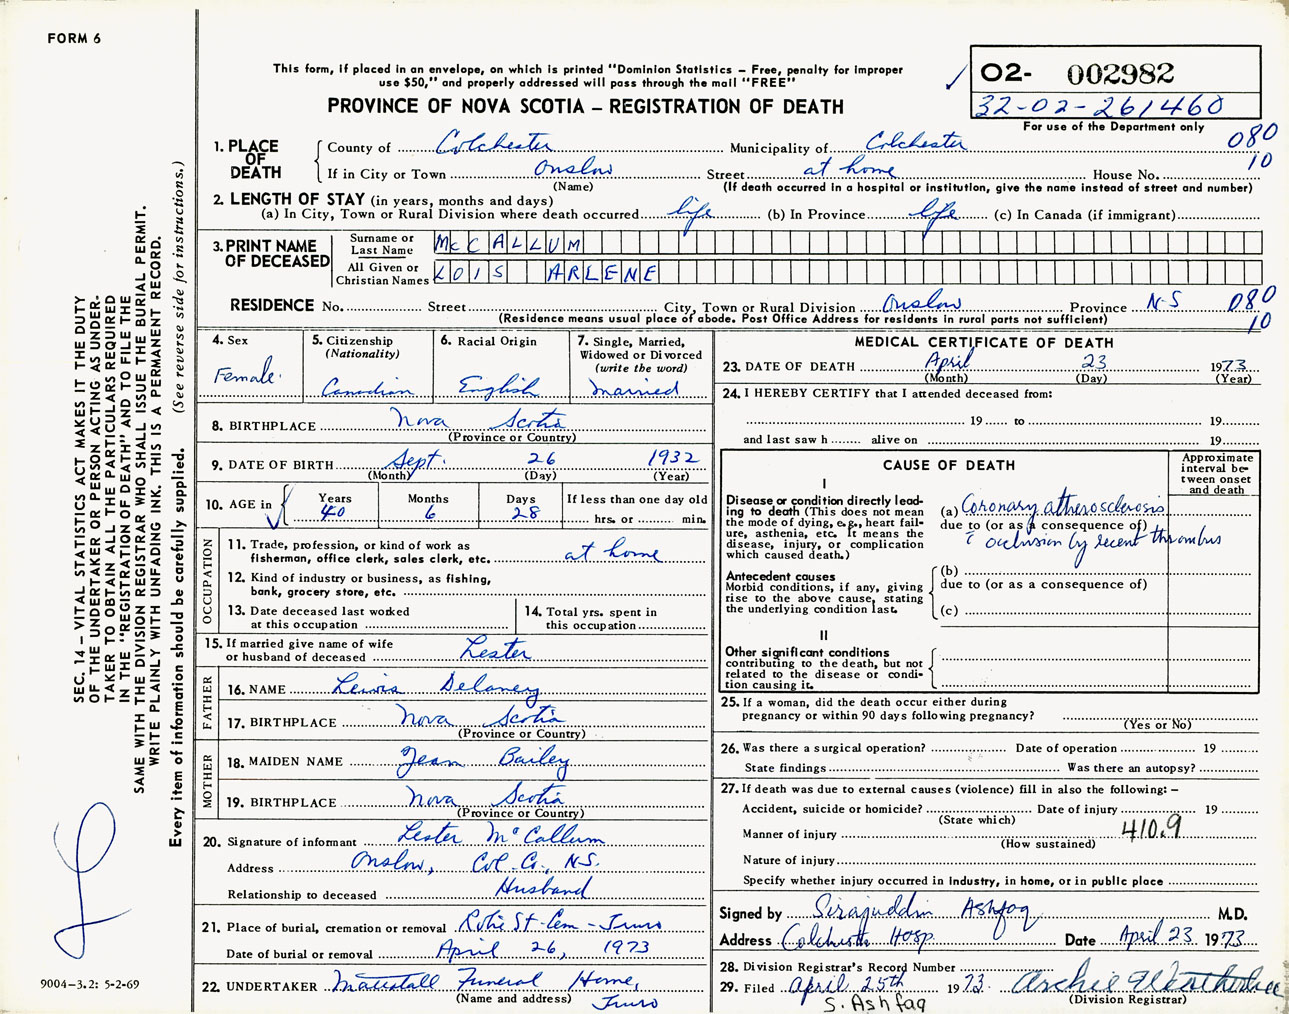 FORM 6
This form, if placed in an envelope, on which is printed "Dominion Statistics – Free, penalty for improper
use $50," and properly addressed will pass through the mail "FREE"
PROVINCE OF NOVA SCOTIA – REGISTRATION OF DEATH
02- 002982
32-02-261460
For use of the Department only
080
10
1. PLACE OF DEATH
County of Colchester Municipality of Colchester
If in City or Town Onslow Street at home House No.
(Name) (If death occurred in a hospital or institution, give the name instead of street and number)
2. LENGTH OF STAY (in years, months and days)
(a) In City, Town or Rural Division where death occurred life (b) In Province life (c) In Canada (if immigrant)
3. PRINT NAME OF DECEASED
Surname or Last Name McCALLUM
All Given or Christian Names LOIS ARLENE
RESIDENCE No. Street City, Town or Rural Division Onslow Province N-S 080
(Residence means usual place of abode. Post Office Address for residents in rural parts not sufficient) 10
4. Sex
Female
5. Citizenship
(Nationality)
Canadian
6. Racial Origin
English
7. Single, Married,
Widowed or Divorced
(write the word)
married
8. BIRTHPLACE Nova Scotia
(Province or Country)
9. DATE OF BIRTH Sept. 26 1932
(Month) (Day) (Year)
10. AGE in
Years
40
Months
6
Days
28
If less than one day old
hrs. or min.
OCCUPATION
11. Trade, profession, or kind of work as
fisherman, office clerk, sales clerk, etc. at home
12. Kind of industry or business, as fishing,
bank, grocery store, etc.
13. Date deceased last worked
at this occupation
14. Total yrs. spent in
this occupation
15. If married give name of wife
or husband of deceased Lester
FATHER
16. NAME Lewis Delaney
17. BIRTHPLACE Nova Scotia
(Province or Country)
MOTHER
18. MAIDEN NAME Jean Bailey
19. BIRTHPLACE Nova Scotia
(Province or Country)
20. Signature of informant Lester McCallum
Address Onslow, Col. Co., N.S.
Relationship to deceased Husband
21. Place of burial, cremation or removal Robie St. Cem - Truro
Date of burial or removal April 26, 1973
22. UNDERTAKER Mattatall Funeral Home,
(Name and address) Truro
MEDICAL CERTIFICATE OF DEATH
23. DATE OF DEATH April 23 1973
(Month) (Day) (Year)
24. I HEREBY CERTIFY that I attended deceased from:
19 to 19
and last saw h alive on 19
CAUSE OF DEATH
Approximate
interval be-
tween onset
and death
I
Disease or condition directly lead-
ing to death (This does not mean
the mode of dying, e.g., heart fail-
ure, asthenia, etc. It means the
disease, injury, or complication
which caused death.)
(a) Coronary atherosclerosis
due to (or as a consequence of)
c̄ occlusion by recent thrombus
Antecedent causes
Morbid conditions, if any, giving
rise to the above cause, stating
the underlying condition last.
(b)
due to (or as a consequence of)
(c)
II
Other significant conditions
contributing to the death, but not
related to the disease or condi-
tion causing it.
25. If a woman, did the death occur either during
pregnancy or within 90 days following pregnancy?
(Yes or No)
26. Was there a surgical operation? Date of operation 19
State findings Was there an autopsy?
27. If death was due to external causes (violence) fill in also the following: –
Accident, suicide or homicide? Date of injury 19
(State which)
Manner of injury 410.9
(How sustained)
Nature of injury
Specify whether injury occurred in industry, in home, or in public place
Signed by Sirajuddin Ashfaq M.D.
Address Colchester Hosp. Date April 23 1973
28. Division Registrar's Record Number
29. Filed April 25th 1973. Archie Weatherbee
(Division Registrar)
S. Ashfaq
SEC. 14 – VITAL STATISTICS ACT MAKES IT THE DUTY
OF THE UNDERTAKER OR PERSON ACTING AS UNDER-
TAKER TO OBTAIN ALL THE PARTICULARS REQUIRED
IN THE "REGISTRATION OF DEATH" AND TO FILE THE
SAME WITH THE DIVISION REGISTRAR WHO SHALL ISSUE THE BURIAL PERMIT.
WRITE PLAINLY WITH UNFADING INK. THIS IS A PERMANENT RECORD.
Every item of information should be carefully supplied. (See reverse side for instructions.)
9004-3.2: 5-2-69